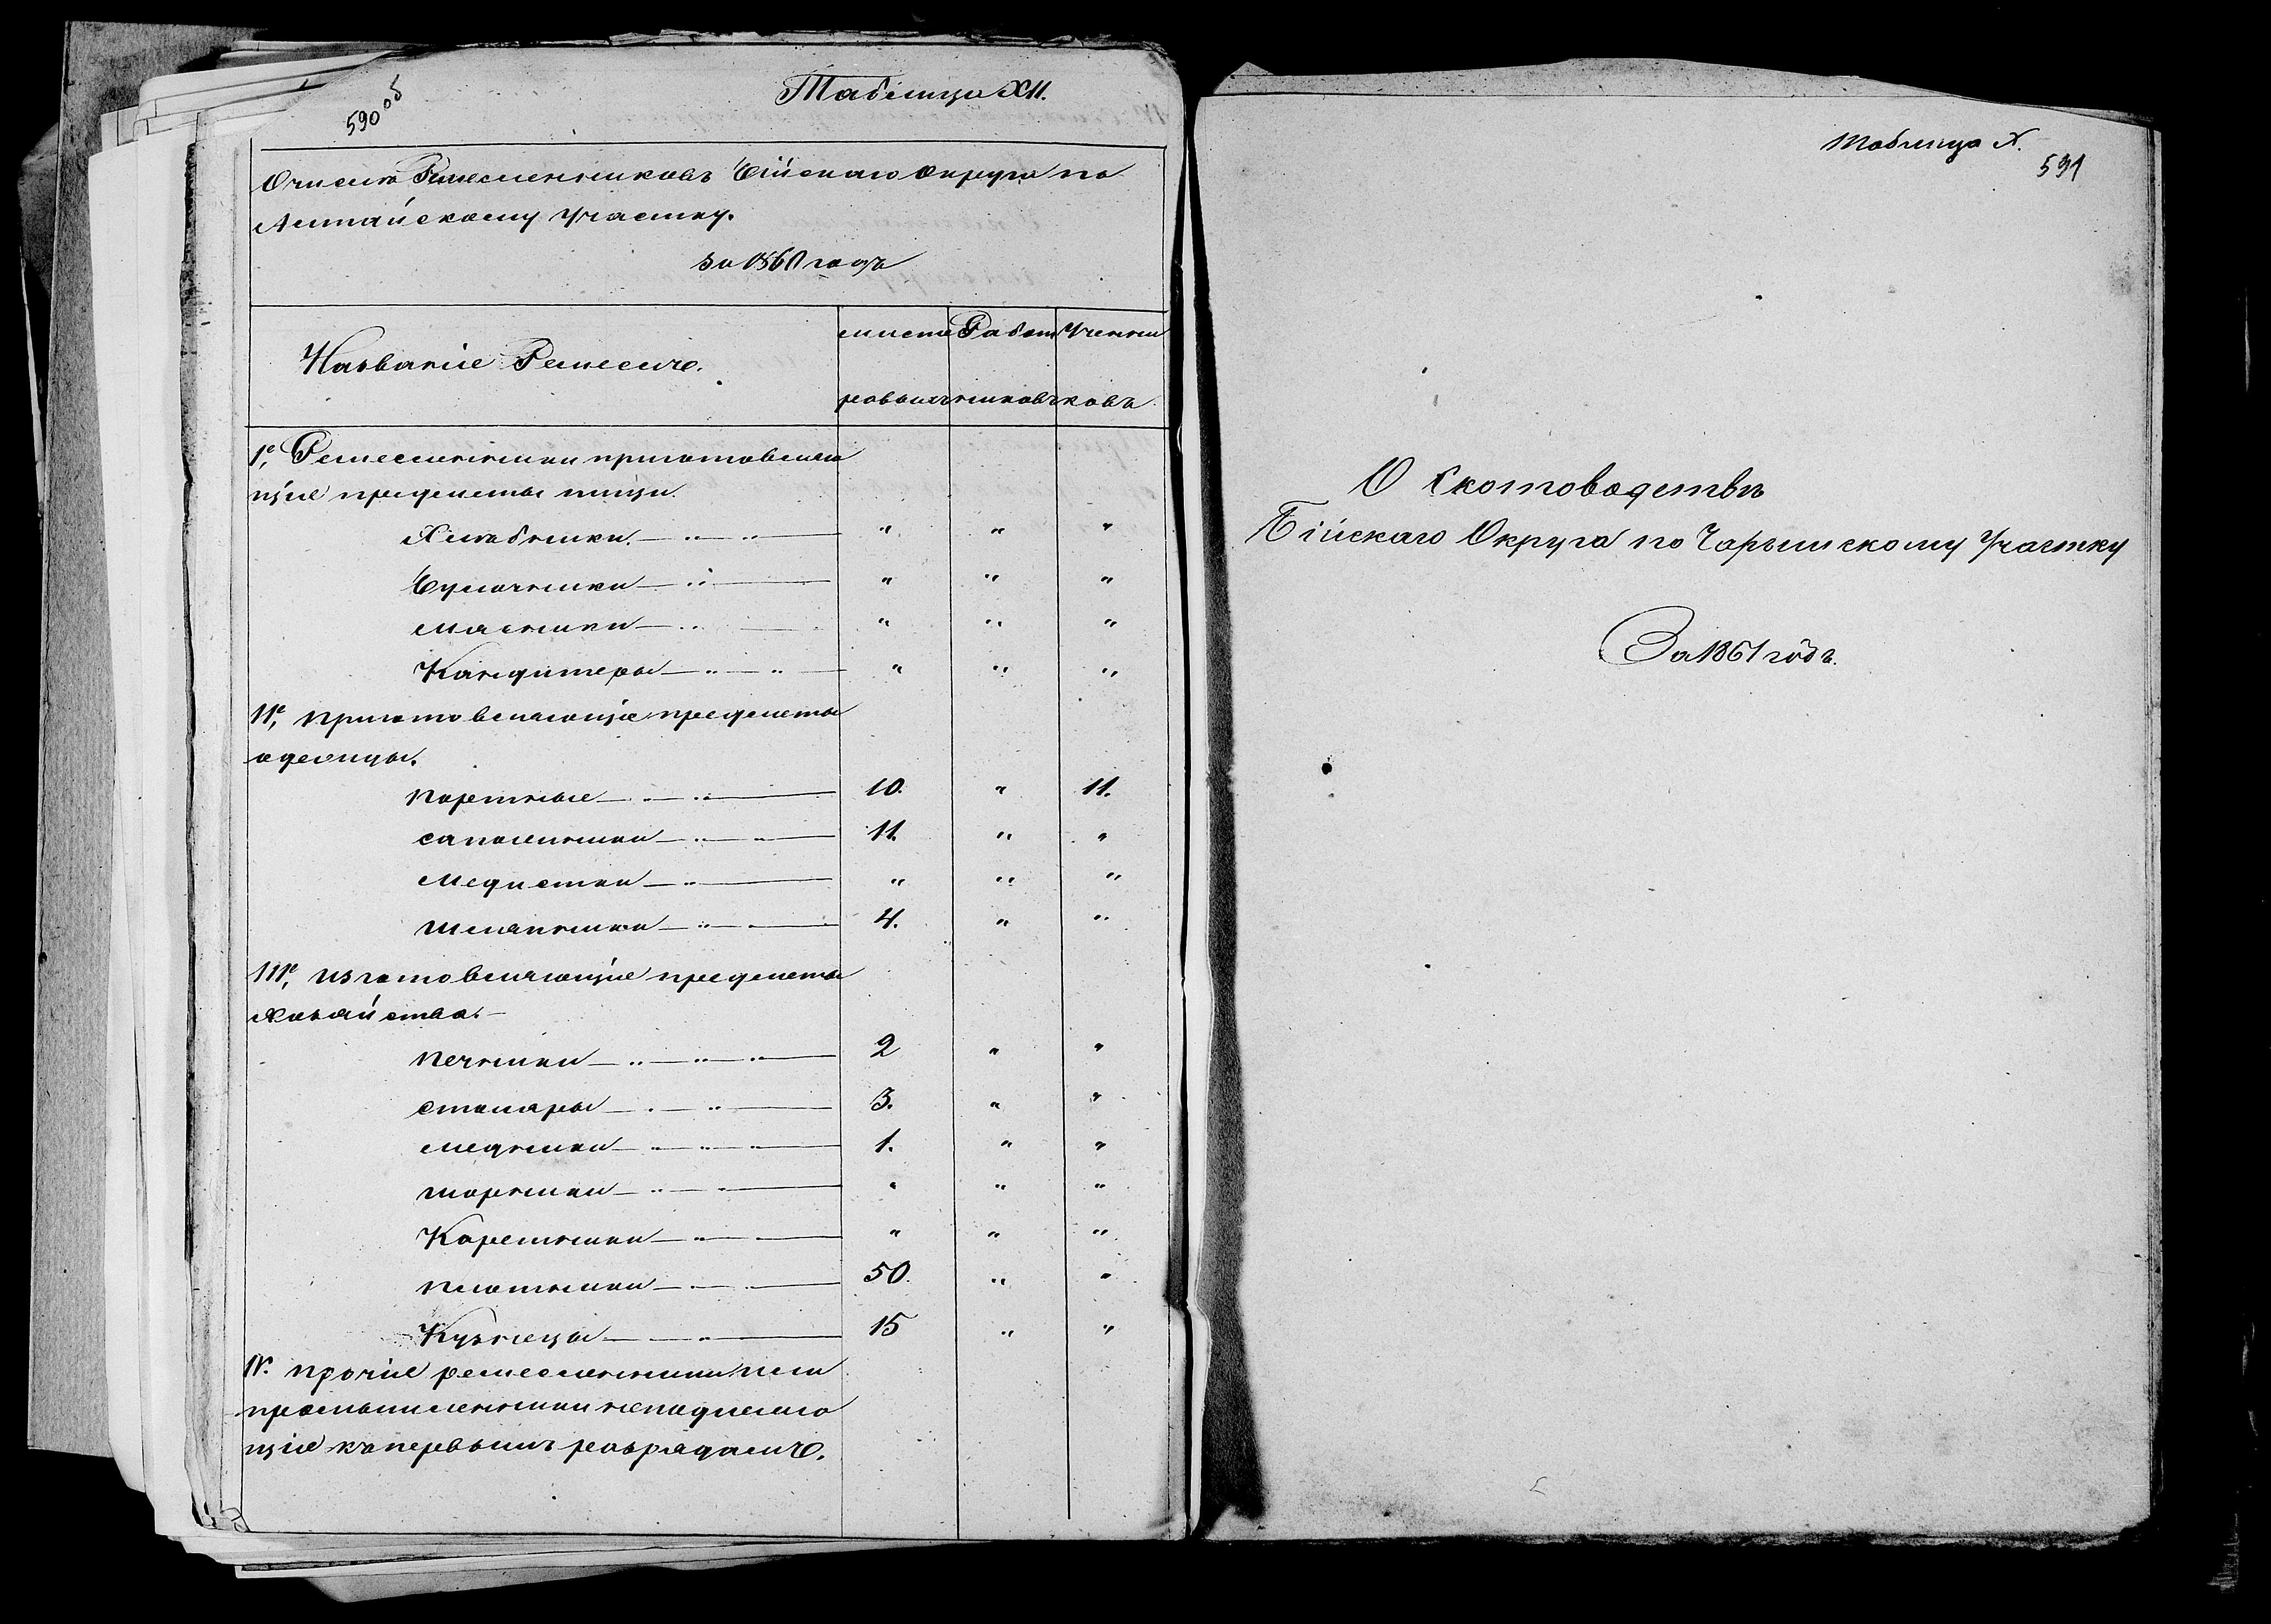 590 об
Таблица XII.
О числѣ Ремесленниковъ Бійскаго округа по
Алтайскому участку.
за 1860 годъ
Названіе Ремеслъ.
масте Работ Учени
ровыхъ никовъ ковъ
I.е, Ремесленники приготовляю
щіе предметы пищи.
Хлѣбники. " " "
Булочники " " "
мясники " " "
Кандитеры " " "
II.е, приготовляющіе предметы
одежды.
портные 10. " 11.
сапожники 11. " "
Модистки " " "
шляпники 4. " "
III.е, изготовляющіе предметы
хозяйства.
печники 2 " "
столяры 3. " "
медники 1. " "
шорники " " "
Каретники " " "
плотники 50. " "
Кузнецы 15 " "
IV. прочіе ремесленники или
промышленники неподлежа
щіе къ первымъ розрядамъ.
Таблица X.
591
О Скотоводствѣ
Бійскаго Округа по Чарышскому Участку
За 1861 годъ.